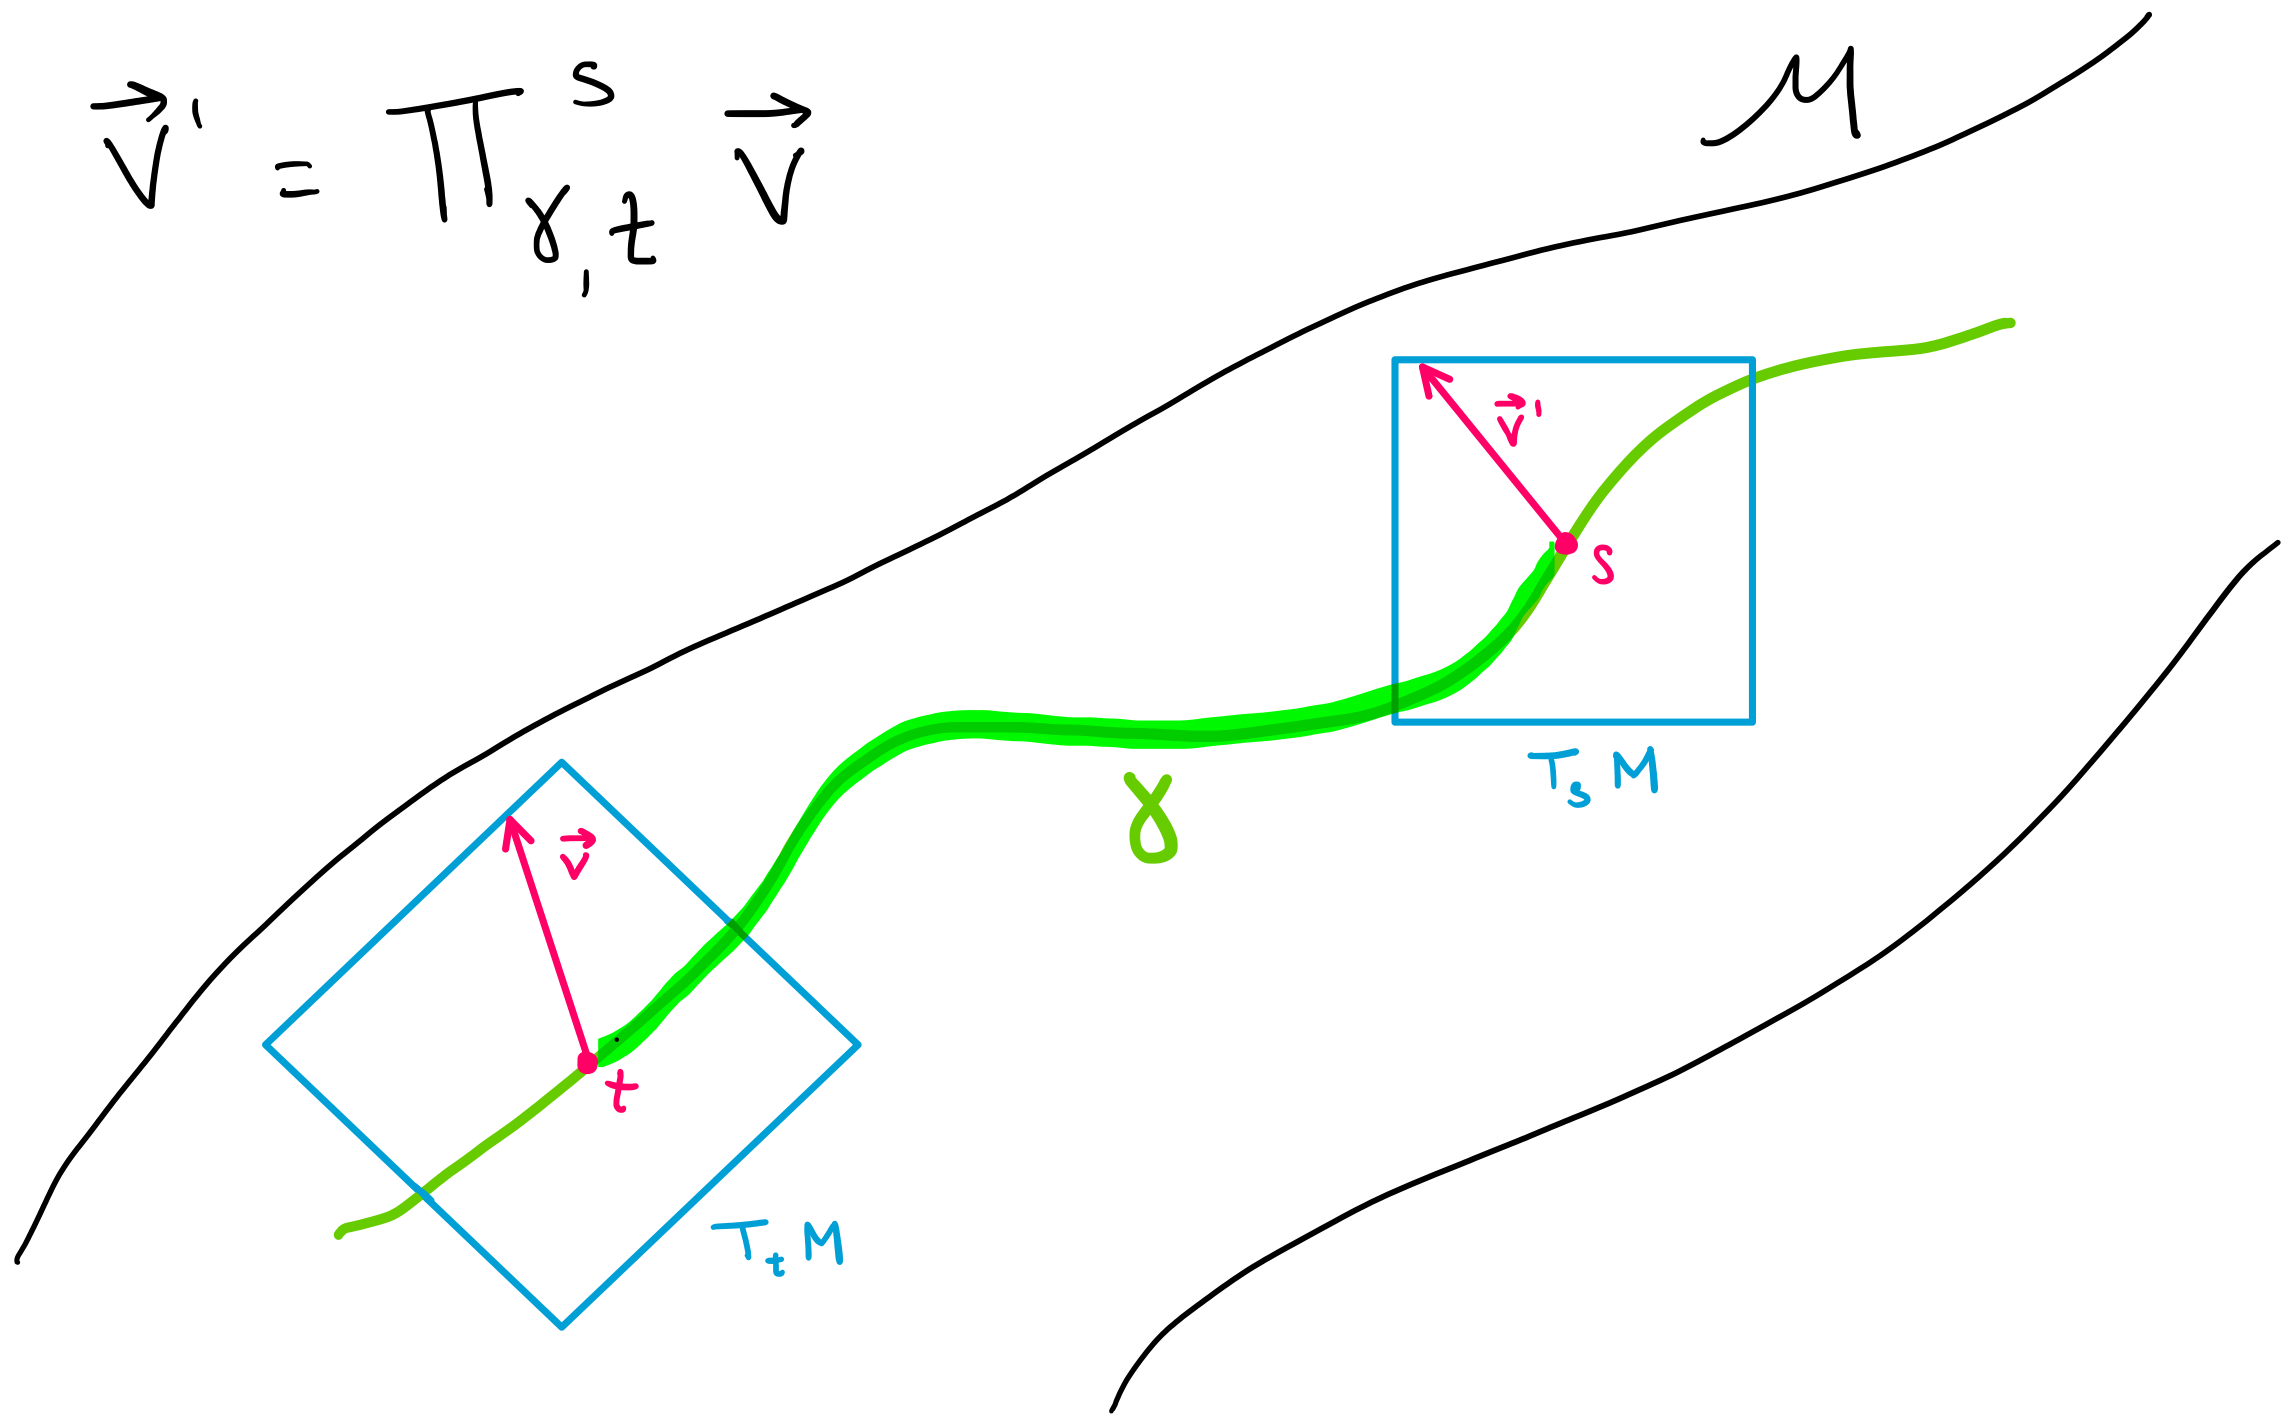 v⃗' = Π_{γ,t}^s v⃗
M
v⃗'
s
T_s M
γ
v⃗
t
T_t M